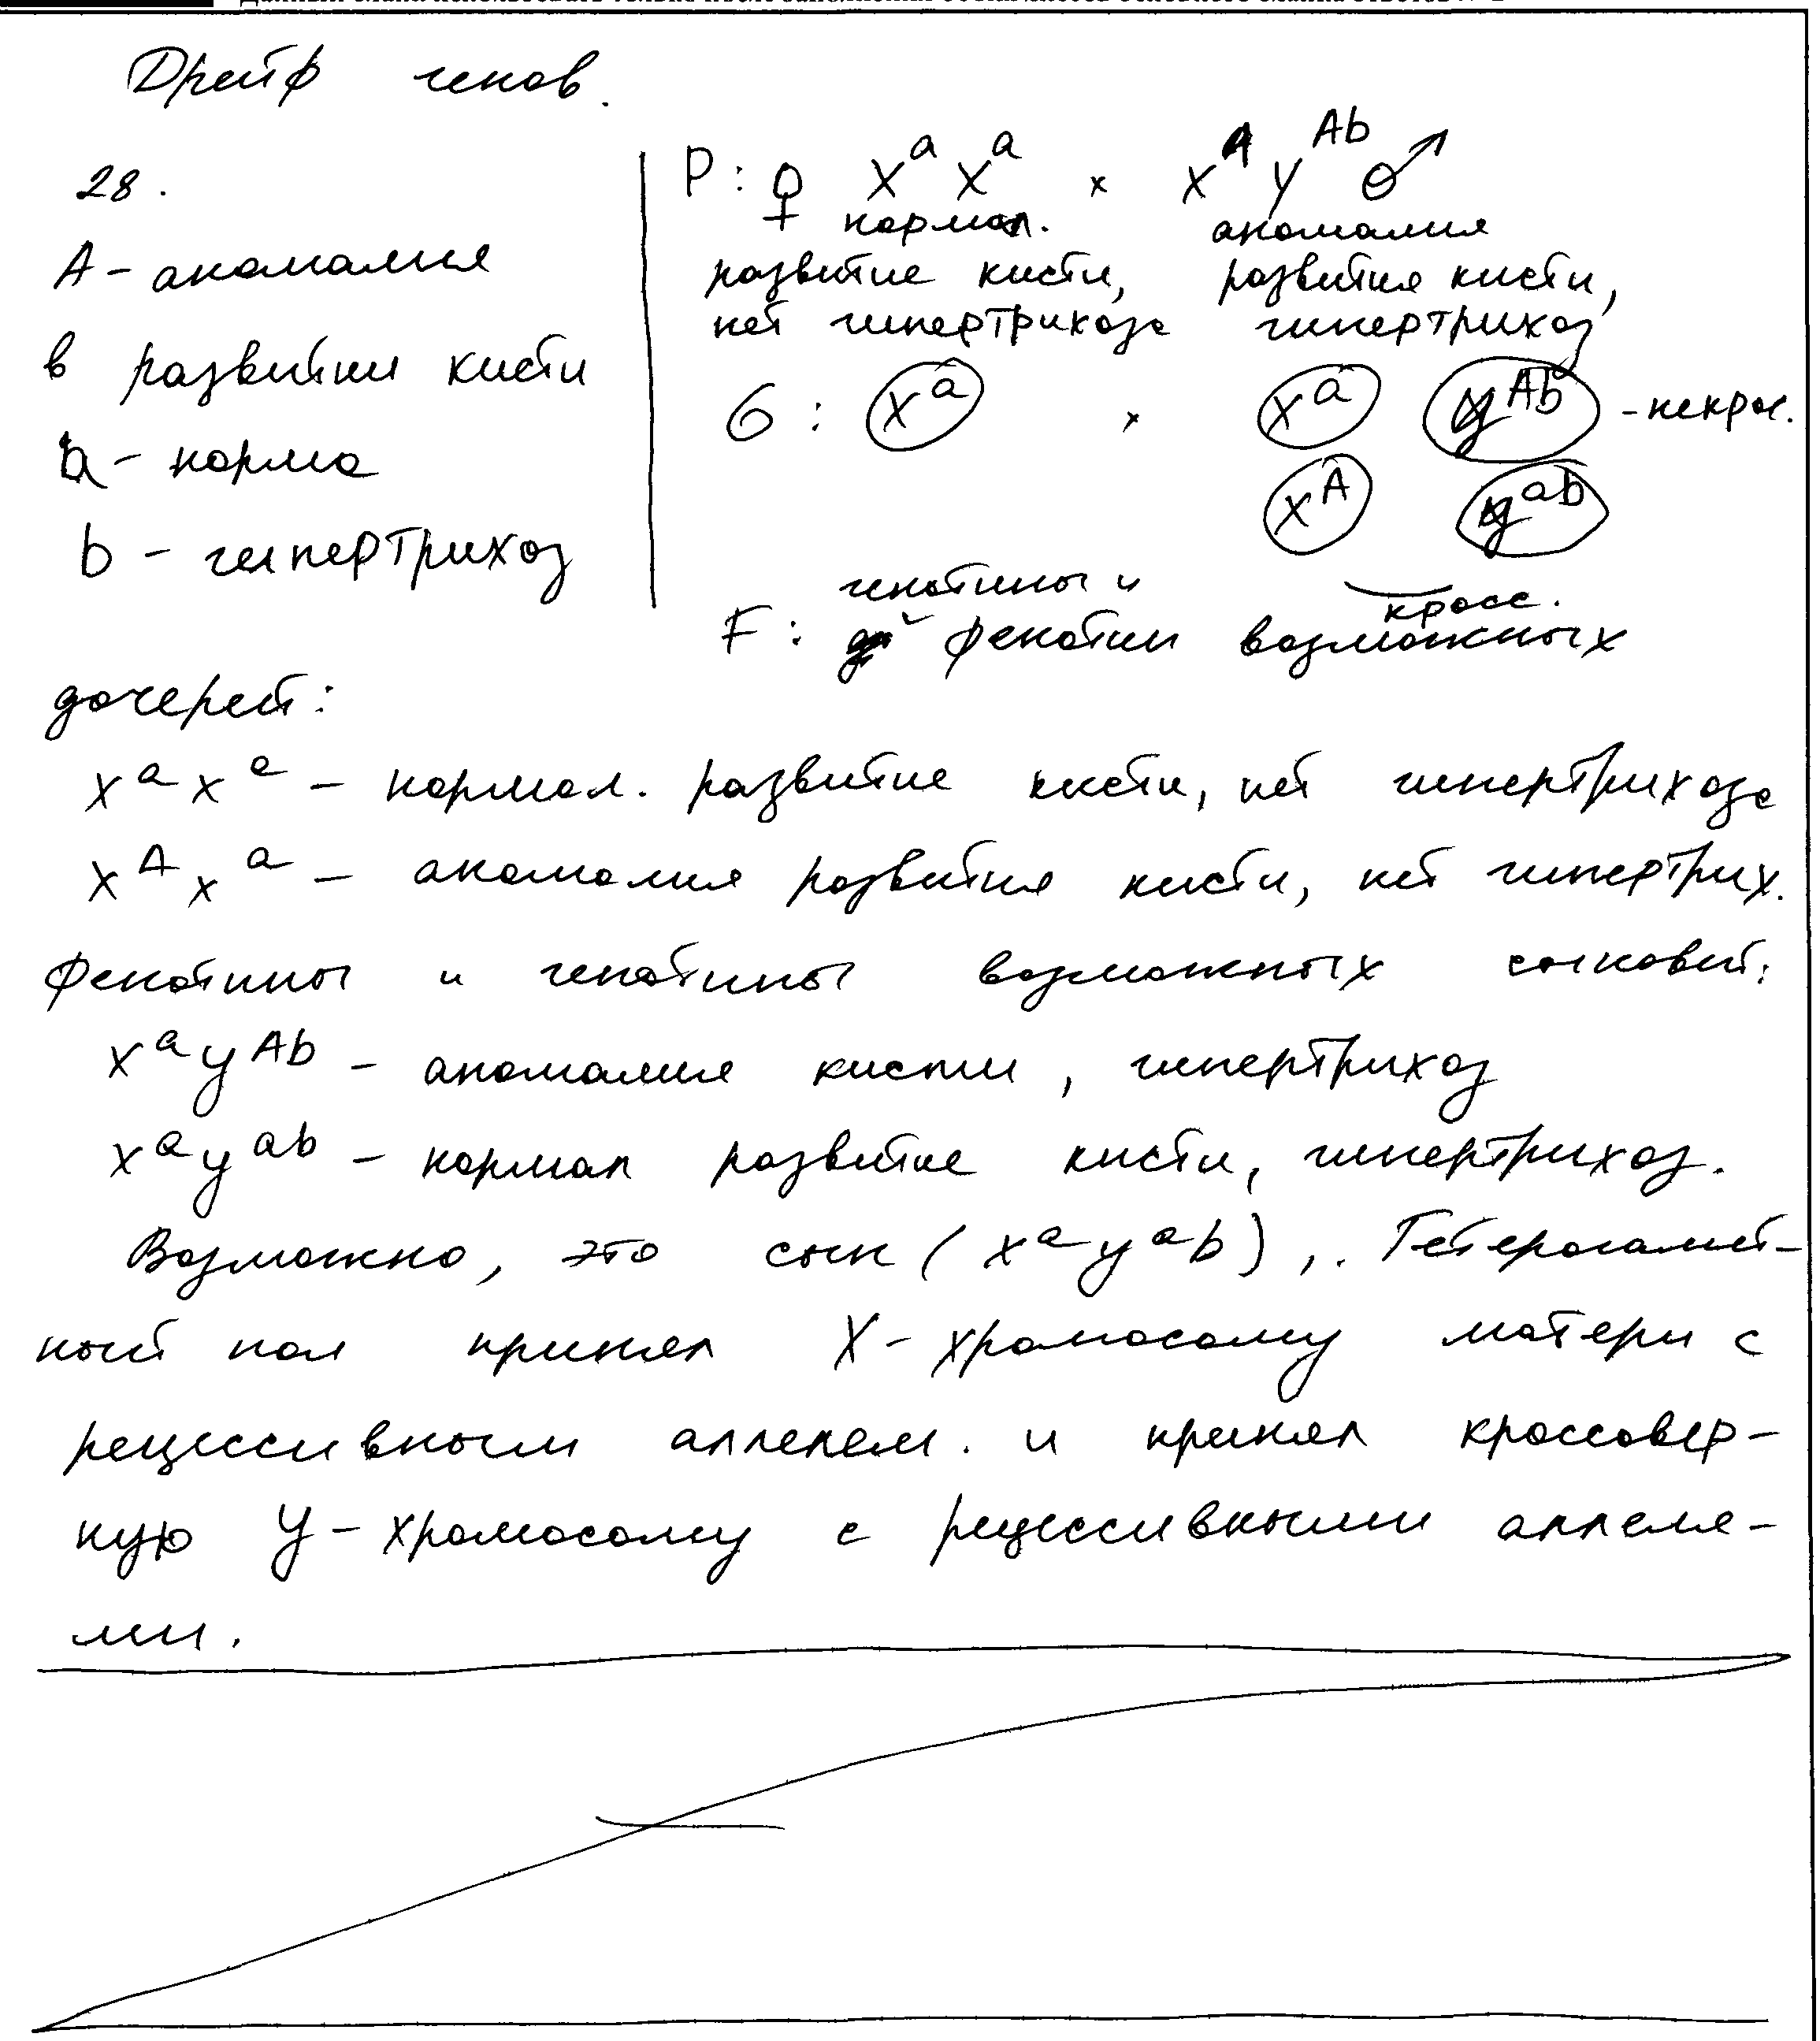 Дрейф генов.
28.
А - аномалия
в развитии кисти
а - норма
b - гипертрихоз
P: ♀ X^a X^a × X^A Y^Ab ♂
нормал. аномалия
развитие кисти, развития кисти,
нет гипертрихоза гипертрихоз
G: X^a × X^a Y^Ab - некрос.
X^A Y^ab
кросс.
генотипы и
F: фенотип возможных
дочерей:
X^a X^a - нормал. развитие кисти, нет гипертрихоза
X^A X^a - аномалия развития кисти, нет гипертрих.
Фенотипы и генотипы возможных сыновей:
X^a Y^Ab - аномалия кисти, гипертрихоз
X^a Y^ab - нормал развитие кисти, гипертрихоз.
Возможно, это сын (X^a Y^ab),. Гетерогамет-
ный пол принял X-хромосому матери с
рецессивным аллелем. и принял кроссовер-
ную Y-хромосому с рецессивными аллеля-
ми.